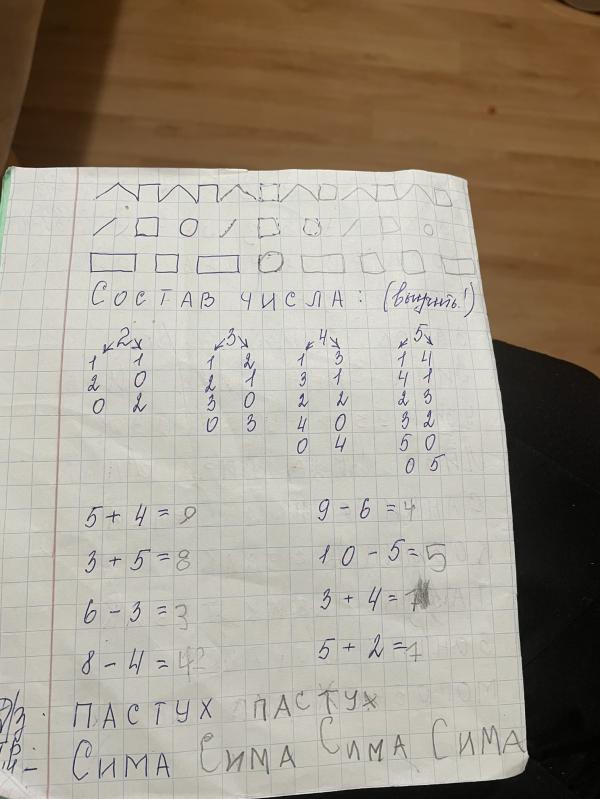 СОСТАВ ЧИСЛА: (выучить!)
2 3 4 5
1 1 1 2 1 3 1 4
2 0 2 1 3 1 4 1
0 2 3 0 2 2 2 3
0 3 4 0 3 2
0 4 5 0
0 5
5 + 4 = 9 9 - 6 = 4
3 + 5 = 8 10 - 5 = 5
6 - 3 = 3 3 + 4 = 7
8 - 4 = 4 5 + 2 = 7
Д/З. ПАСТУХ ПАСТУХ
СИМА СИМА СИМА СИМА